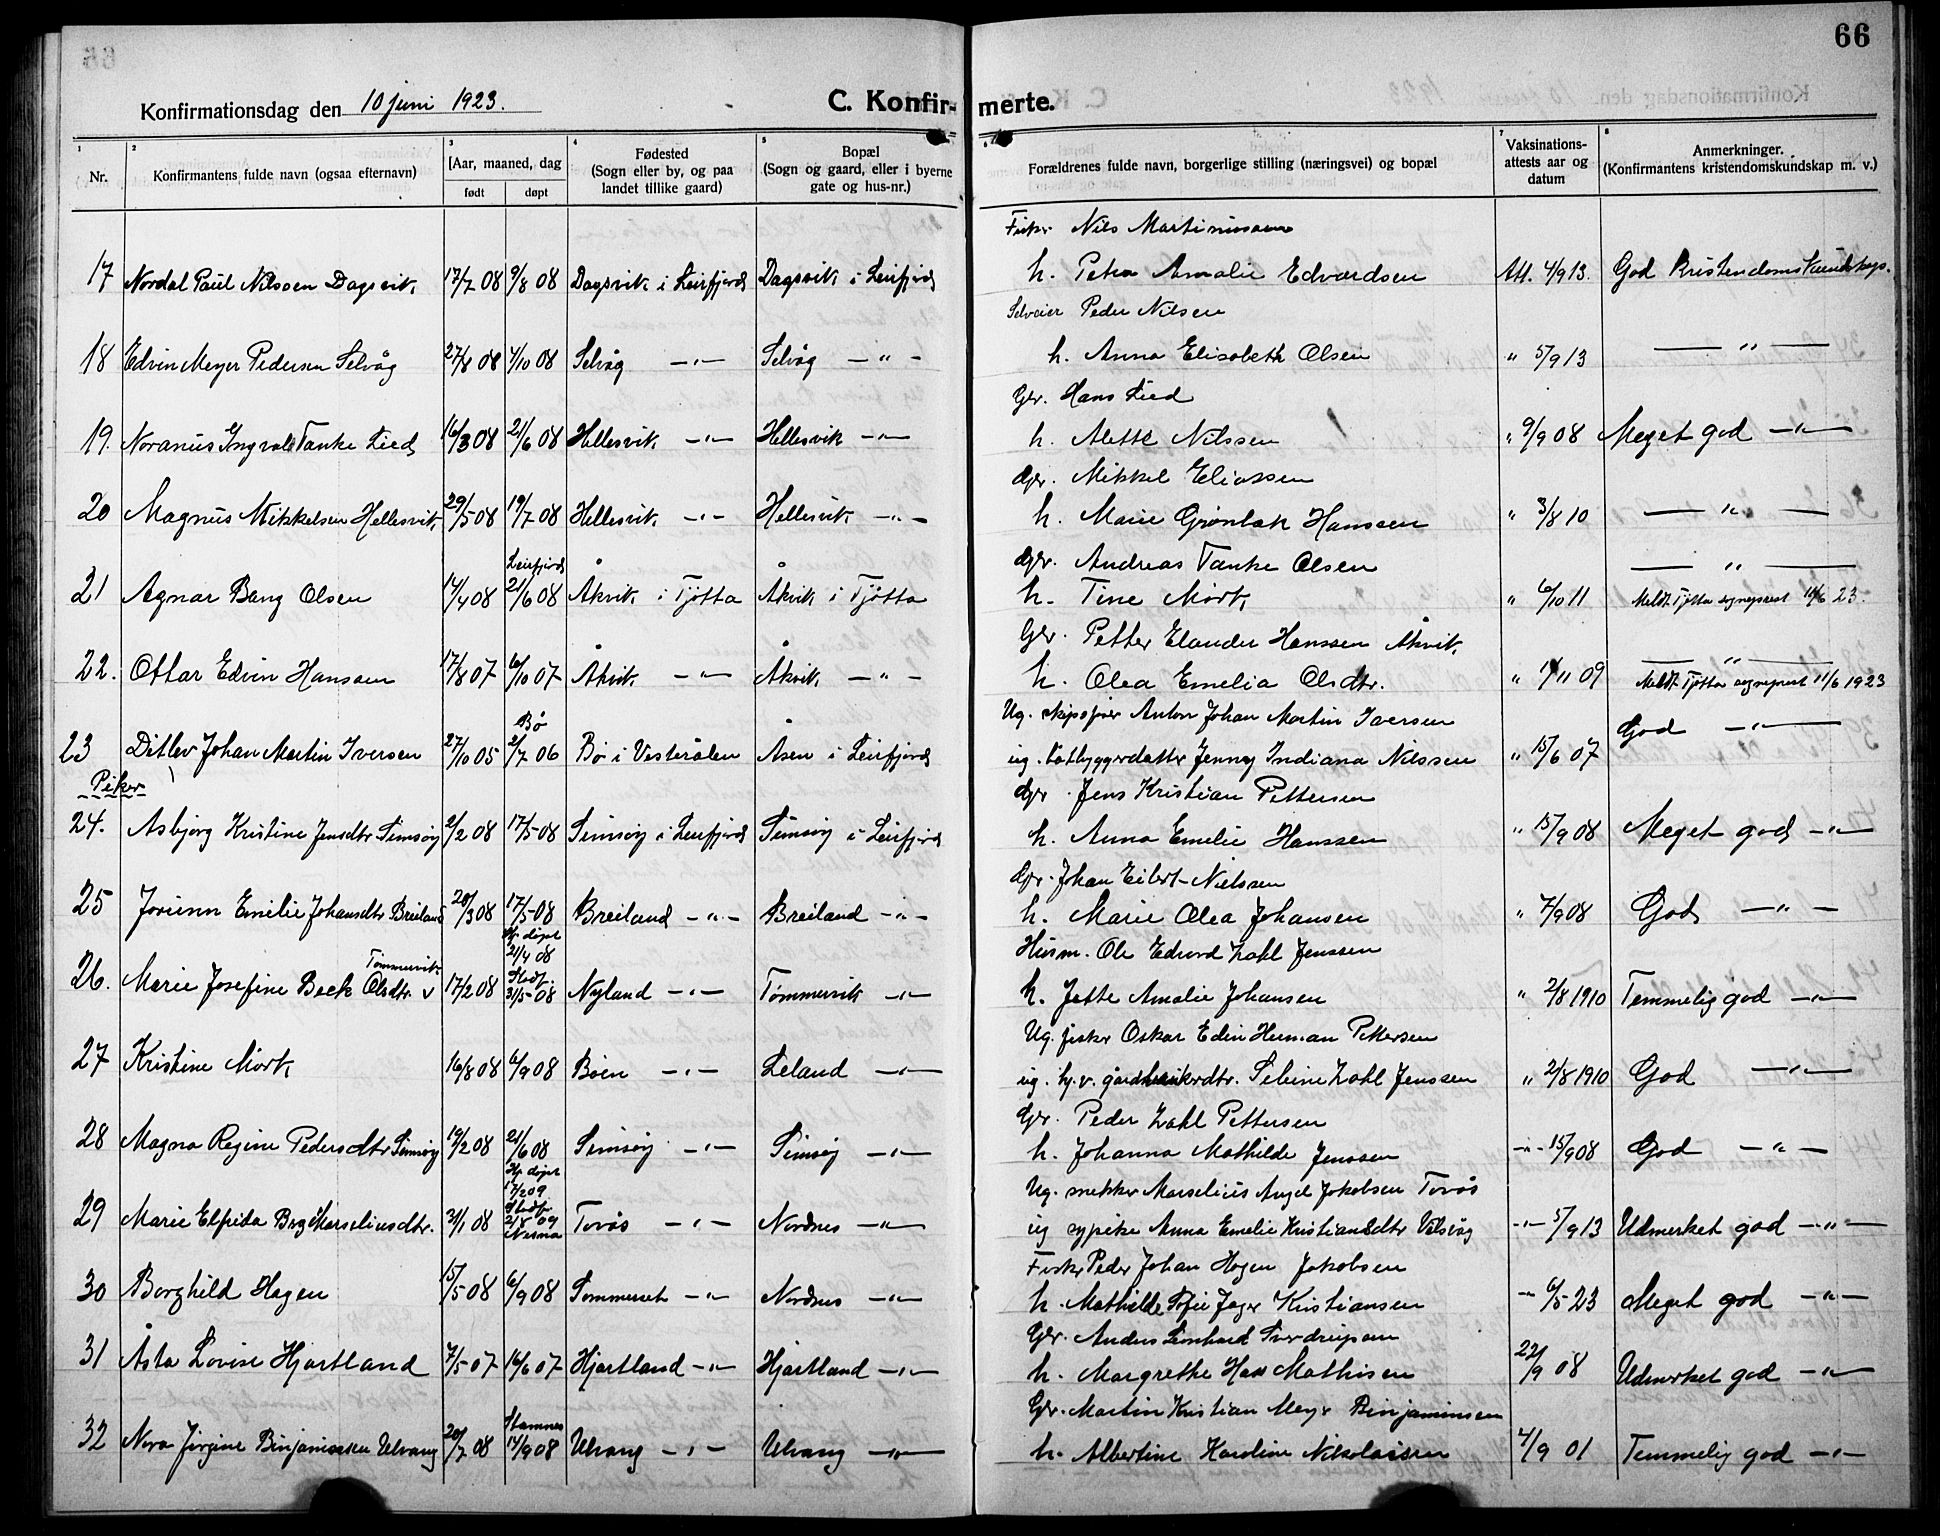 66
Konfirmationsdag den 10 juni 1923.
C. Konfir- merte.
1 2 3 4 5 6 7 8
Nr. Konfirmantens fulde navn (ogsaa efternavn) [Aar, maaned, dag født døpt Fødested (Sogn eller by, og paa landet tillike gaard) Bopæl (Sogn og gaard, eller i byerne gate og hus-nr.) Forældrenes fulde navn, borgerlige stilling (næringsvei) og bopæl Vaksinations-attests aar og datum Anmerkninger. (Konfirmantens kristendomskundskap m. v.)
Fisker Nils Martinussen
17 Nordal Paul Nilssen Dagsvik 17/7 08 9/8 08 Dagsvik i Leirfjord Dagsvik i Leirfjord h. Petra Amalie Edvardsen Att. 4/9 13. God Kristendomskundskap.
Selveier Peder Nilsen
18 Edvin Meyer Pedersen Selvåg 27/8 08 4/10 08 Selvåg —"— Selvåg —"— h. Anna Elisabeth Olsen " 5/9 13 — " —
Gbr. Hans Lied
19. Noranus Ingvald Tanke Lied 16/3 08 21/6 08 Hellesvik —"— Hellesvik —"— h. Alette Nilssen " 9/9 08 Meget god —"—
Gbr. Mikkel Eliassen
20 Magnus Mikkelsen Hellesvik 29/5 08 19/7 08 Hellesvik —"— Hellesvik —"— h. Marie Grønbæk Hanssen " 3/8 10 — " —
Leirfjord
Gbr. Andreas Tanke Olsen — " —
21 Agnar Bang Olsen 14/4 08 21/6 08 Åkvik i Tjøtta Åkvik i Tjøtta h. Tine Mørk " 6/10 11 Meldt Tjøtta sogneprest 11/6 23.
Gbr. Petter Elander Hanssen Åkvik
22. Ottar Edvin Hanssen 17/8 07 6/10 07 Åkvik —"— Åkvik —"— h. Olea Emelia Olsdtr. " 1/11 09 — " — Meldt Tjøtta sogneprest 11/6 1923
Bø
Ug. skipsfører Anton Johan Martin Iversen
23 Ditlev Johan Martin Iversen 27/10 05 2/7 06 Bø i Vesterålen Åsen i Leirfjord ug. Båtbyggerdatter Jenny Indiana Nilssen " 15/6 07 God —"—
Piker
Gbr. Jens Kristian Pettersen
24. Asbjørg Kristine Jensdtr Simsøy 2/2 08 17/5 08 Simsøy i Leirfjord Simsøy i Leirfjord h. Anna Emelie Hanssen " 15/9 08 Meget god —"—
Gbr. Johan Eilert Nielssen
25 Jorunn Emilie Johansdtr Breiland 20/3 08 17/5 08 Breiland —"— Breiland —"— h. Marie Olea Johansen " 7/9 08 God —"—
Hj. døpt 21/4 08
Husm. Ole Edvard Zahl Jenssen
26. Marie Josefine Beck Olsdtr. Tømmervik 17/2 08 Stadf. 31/5 08 Nyland —"— Tømmervik —"— h. Jette Amalie Johansen " 2/8 1910 Temmelig god —"—
Ug. fisker Oskar Edin Herman Pettersen
27 Kristine Mørk 16/8 08 6/9 08 Bøen —"— Leland —"— ug. hj. v. gårdbrukerdtr. Seline Zahl Jenssen " 2/8 1910 God —"—
Gbr. Peder Zahl Pettersen
28 Magna Regine Pedersdtr Simsøy 19/2 08 21/6 08 Simsøy —"— Simsøy —"— h. Johanna Mathilde Jenssen —"— 15/9 08 God —"—
Hj. døpt 17/2 09 Stadf. 2/8 09 Nesna
Ug. snekker Marselius Angel Jakobsen Torås
29 Marie Elfrida Berg Marseliusdtr. 31/1 08 Torås —"— Nordnes —"— ug sypike Anna Emelie Kristiansdtr Valsvåg —"— 5/9 13 Udmerket god —"—
Fisker Peder Johan Hagen Jakobsen
30 Borghild Hagen 15/5 08 6/9 08 Sommerset —"— Nordnes —"— h. Mathilde Sofie Jager Kristiansen —"— 6/5 23 Meget god —"—
Gbr. Anders Leonhard Sverdrupsen
31 Åsta Lovise Hjartland 7/5 07 16/6 07 Hjartland —"— Hjartland —"— h. Margrethe Hass Mathisen 22/9 08 Udmerket god —"—
Stamnes
Gbr. Martin Kristian Meyer Binjaminsen
32 Nora Jørgine Binjaminsen Ulvang 20/7 08 14/9 08 Ulvang —"— Ulvang —"— h. Albertine Karoline Nikolaisen 4/9 01 Temmelig god —"—